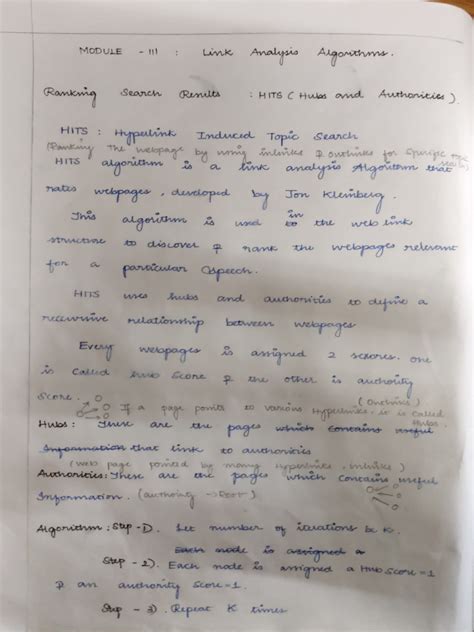 MODULE - III : Link Analysis Algorithms.
Ranking Search Results : HITS (Hubs and Authorities).
HITS : Hyperlink Induced Topic Search
(Ranking the webpage by using inlinks & outlinks for specific
HITS algorithm is a link analysis Algorithm that
rates webpages, developed by Jon Kleinberg.
in
This algorithm is used to the web link
structure to discover & rank the webpages relevant
for a particular
HITS uses hubs and authorities to define a
recursive relationship between webpages
Every webpages is assigned 2 scores. One
is called hub score & the other is authority
score. (Outlinks)
If a page points to various hyperlinks, it is called
Hubs.
Hubs : These are the pages which contains useful
Information that link to authorities
(web page pointed by many hyperlinks, inlinks)
Authorities: These are the pages which contains useful
Information. (authority → Root)
Algorithm : Step - 1). Let number of iterations be K.
Each node is assigned a
Step - 2). Each node is assigned a Hub Score = 1
& an authority score = 1.
Step - 3). Repeat K times